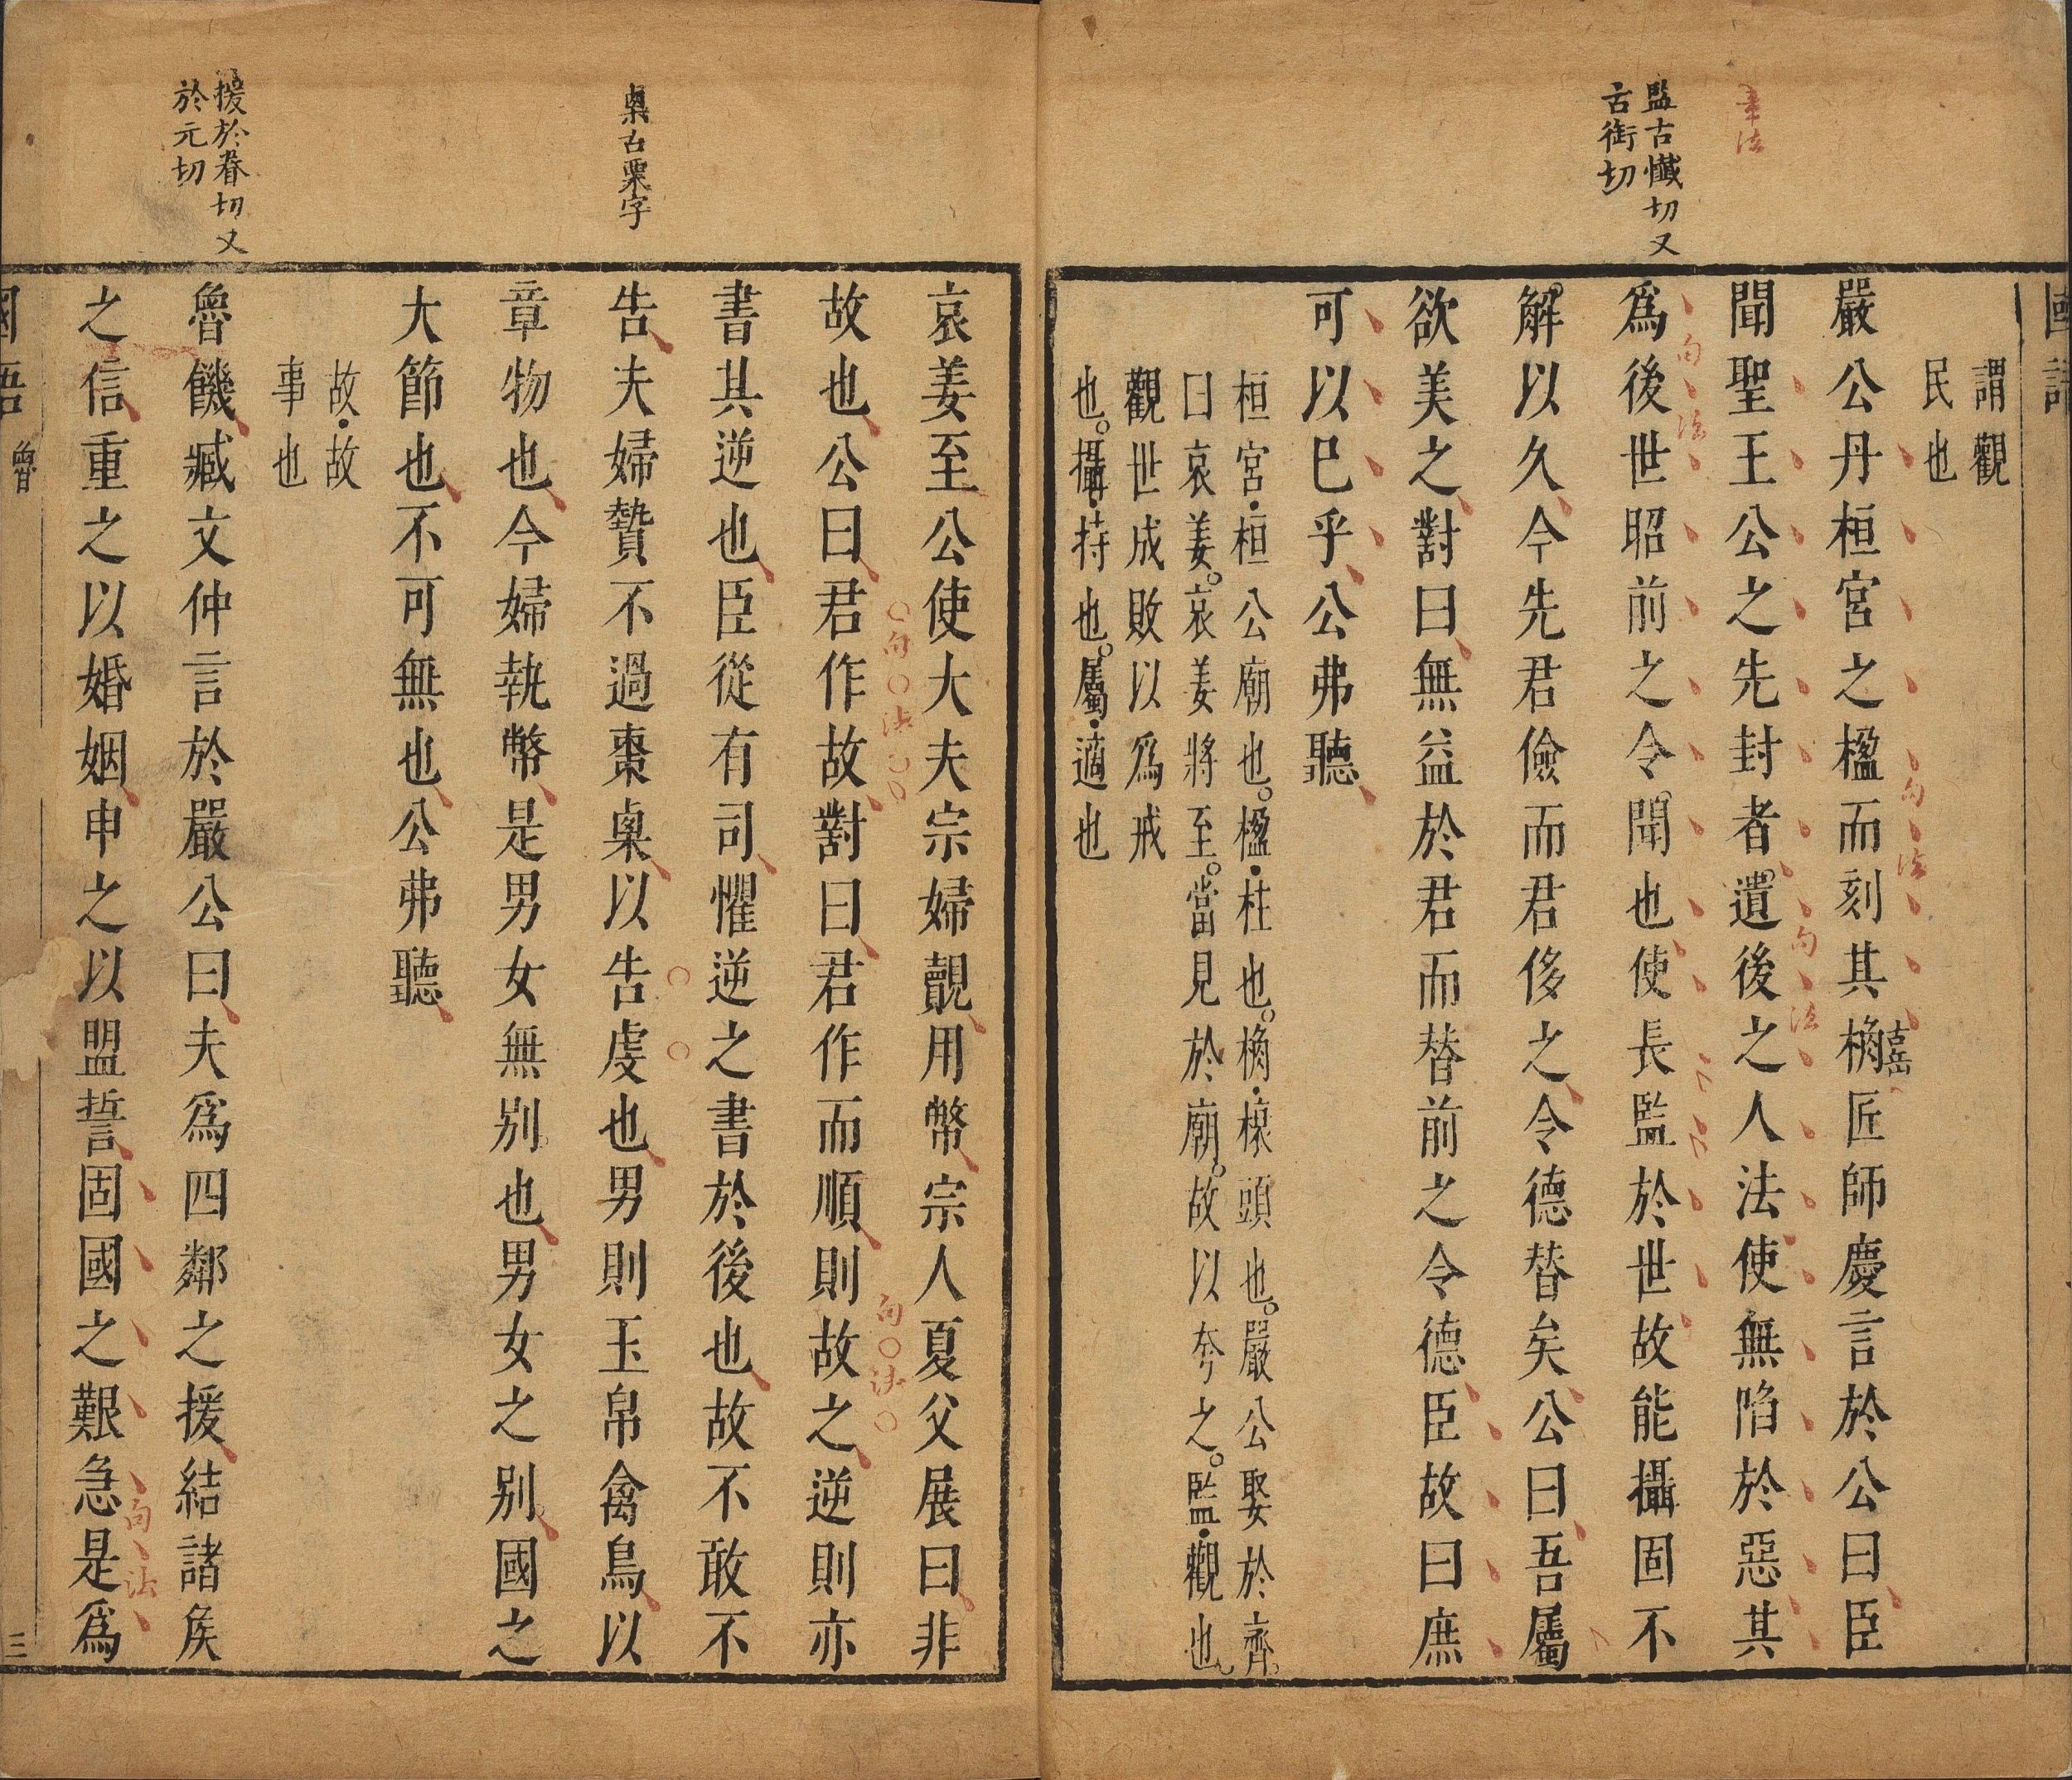 國語
謂觀
民也
嚴公丹桓宮之楹而刻其桷匠師慶言於公曰臣
嘉
聞聖王公之先封者遺後之人法使無陷於惡其
爲後世昭前之令聞也使長監於世故能攝固不
解以久今先君儉而君侈之令德替矣公曰吾屬
欲美之對曰無益於君而替前之令德臣故曰庶
可以巳乎公弗聽
桓宮桓公廟也楹柱也桷榱頭也嚴公娶於齊
曰哀姜哀姜將至當見於廟故以夸之監觀也
觀世成敗以爲戒
也攝持也屬適也
章法
監古懺切又
古銜切
句法
句法
句法
哀姜至公使大夫宗婦覿用幣宗人夏父展曰非
故也公曰君作故對曰君作而順則故之逆則亦
書其逆也臣從有司懼逆之書於後也故不敢不
告夫婦贄不過棗㮚以告虔也男則玉帛禽鳥以
章物也今婦執幣是男女無别也男女之别國之
大節也不可無也公弗聽
故故
事也
魯饑臧文仲言於嚴公曰夫爲四鄰之援結諸矦
之信重之以婚姻申之以盟誓固國之艱急是爲
㮚古栗字
援於眷切又
於元切
句法
句法
句法
國語
魯
三